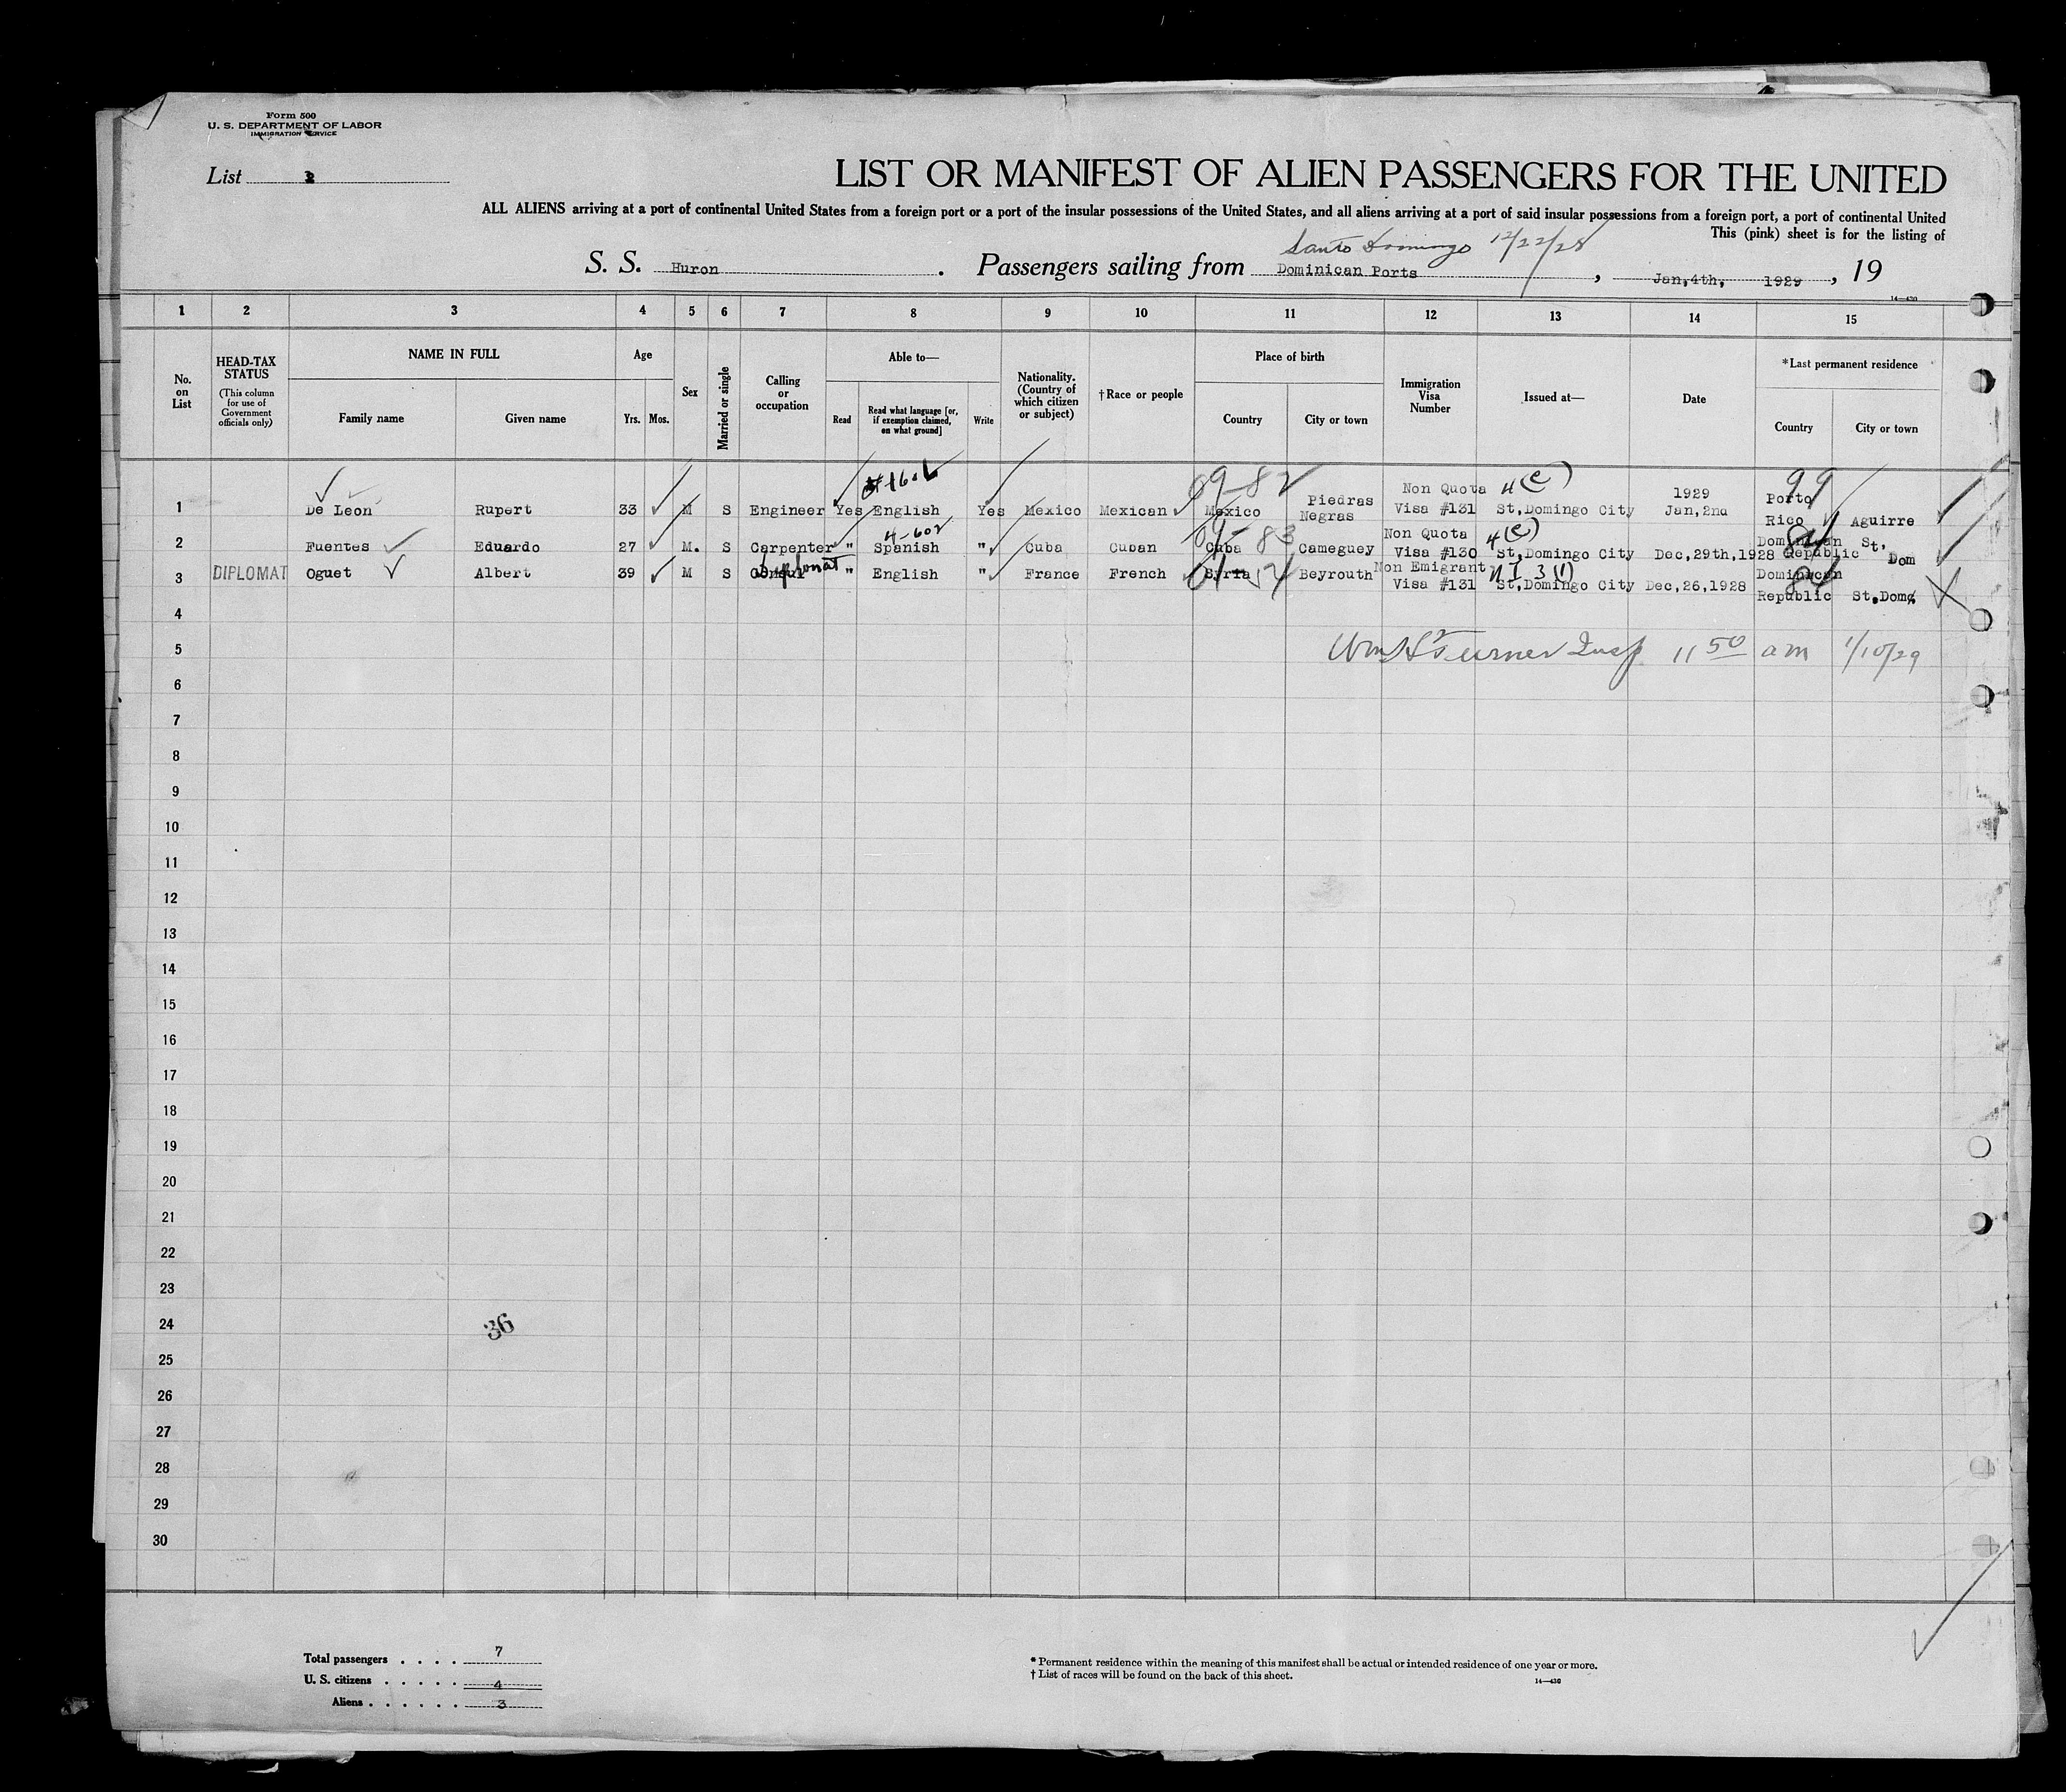 Form 500
U. S. DEPARTMENT OF LABOR
IMMIGRATION SERVICE
List
LIST OR MANIFEST OF ALIEN PASSENGERS FOR THE UNITED
ALL ALIENS arriving at a port of continental United States from a foreign port or a port of the insular possessions of the United States, and all aliens arriving at a port of said insular possessions from a foreign port, a port of continental United
This (pink) sheet is for the listing of
Santo Domingo 12/22/28
S. S. Huron . Passengers sailing from Dominican Ports , Jan,4th, 1929 , 19
14—430
1 2 3 4 5 6 7 8 9 10 11 12 13 14 15
No. on List
HEAD-TAX STATUS
(This column for use of Government officials only)
NAME IN FULL
Family name Given name
Age
Yrs. Mos.
Sex
Married or single
Calling or occupation
Able to—
Read
Read what language [or, if exemption claimed, on what ground]
Write
Nationality. (Country of which citizen or subject)
†Race or people
Place of birth
Country City or town
Immigration Visa Number
Issued at—
Date
*Last permanent residence
Country City or town
09-82 99
Non Quota 4(c) 1929 Porto
1 De Leon Rupert 33 M S Engineer Yes English Yes Mexico Mexican Mexico Piedras Negras Visa #131 St,Domingo City Jan,2nd Rico Aguirre
4-602 83 Non Quota 4(c) Dominican St,
2 Fuentes Eduardo 27 M. S Carpenter " Spanish " Cuba Cuban Cuba Cameguey Visa #130 St,Domingo City Dec,29th,1928 Republic Dom
Diplomat Non Emigrant 3(1) Dominican
3 DIPLOMAT Oguet Albert 39 M S Consul " English " France French Syria Beyrouth Visa #131 St,Domingo City Dec,26,1928 Republic St.Dom
4
5 Wm S Turner Insp 11 50 am 1/10/29
6
7
8
9
10
11
12
13
14
15
16
17
18
19
20
21
22
23
24 36
25
26
27
28
29
30
Total passengers . . . . 7
U. S. citizens . . . . . 4
Aliens . . . . . . 3
* Permanent residence within the meaning of this manifest shall be actual or intended residence of one year or more.
† List of races will be found on the back of this sheet.
14—430